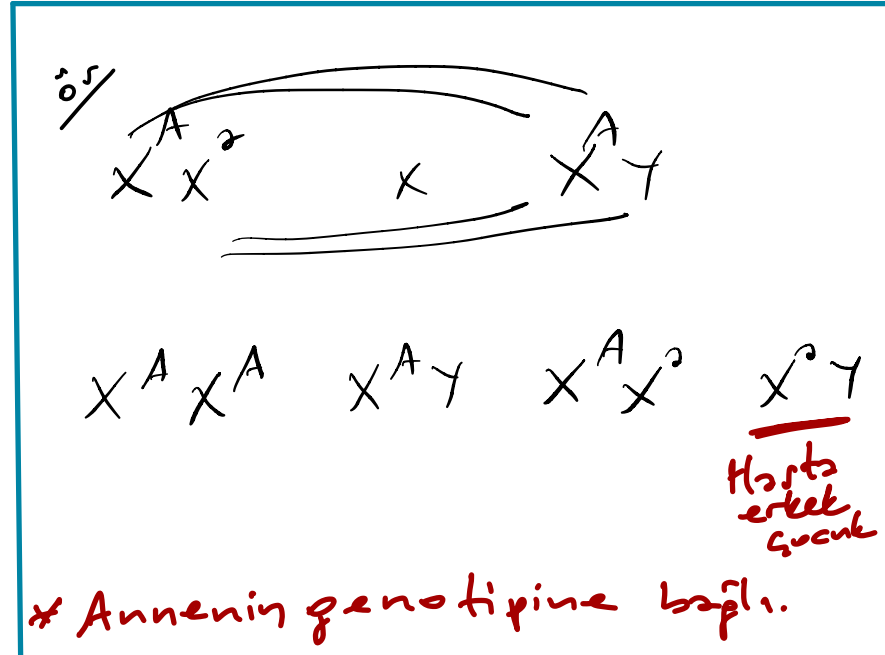 ör/
XᴬXᵃ x XᴬY
XᴬXᴬ XᴬY XᴬXᵃ XᵃY
Hasta
erkek
çocuk
* Annenin genotipine bağlı.